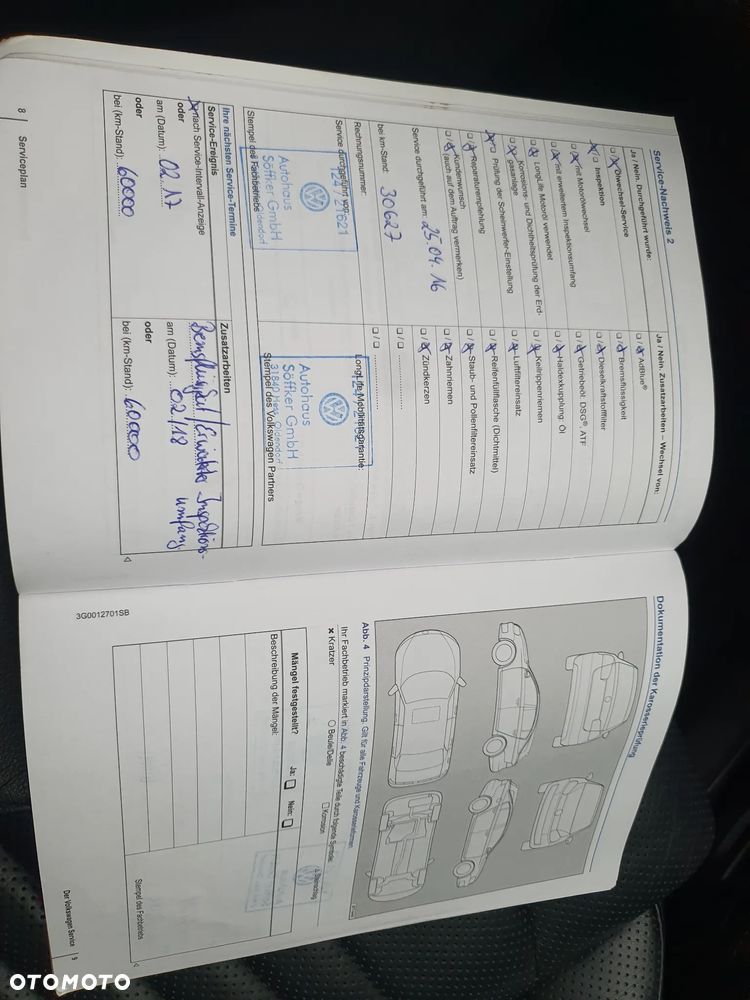 Service-Nachweis 2
Ja / Nein. Durchgeführt wurde:
Ölwechsel-Service
Inspektion
mit Motorölwechsel
mit erweitertem Inspektionsumfang
LongLife Motoröl verwendet
Korrosions- und Dichtheitsprüfung der Erd-
gasanlage
Prüfung der Scheinwerfer-Einstellung
Reparaturempfehlung
Kundenwunsch
(auch auf dem Auftrag vermerken)
Service durchgeführt am: 25.04.16
bei km-Stand: 30627
Rechnungsnummer:
Service durchgeführt von:
Autohaus
Söffker GmbH
Oldendorf
Stempel des Fachbetriebs
Ja / Nein. Zusatzarbeiten – Wechsel von:
AdBlue®
Bremsflüssigkeit
Dieselkraftstofffilter
Getriebeöl: DSG®, ATF
Haldexkupplung: Öl
Keilrippenriemen
Luftfiltereinsatz
Reifenfüllflasche (Dichtmittel)
Staub- und Pollenfiltereinsatz
Zahnriemen
Zündkerzen
LongLife Mobilitätsgarantie:
Autohaus
Söffker GmbH
Oldendorf
Stempel des Volkswagen Partners
Ihre nächsten Service-Termine
Service-Ereignis
nach Service-Intervall-Anzeige
oder
am (Datum): 02.17
oder
bei (km-Stand): 60000
Zusatzarbeiten
am (Datum): 02/18
oder
bei (km-Stand): 60000
8 Serviceplan
Dokumentation der Karosserieprüfung
Abb. 4 Prinzipdarstellung. Gilt für alle Fahrzeuge und Karosserieformen.
Ihr Fachbetrieb markiert in Abb. 4 beschädigte Teile durch folgende Symbole:
Kratzer
Beule/Delle
Korrosion
Steinschlag
Mängel festgestellt? Ja: Nein:
Beschreibung der Mängel:
Stempel des Fachbetriebs
3G0012701SB
Der Volkswagen Service 9
OTOMOTO